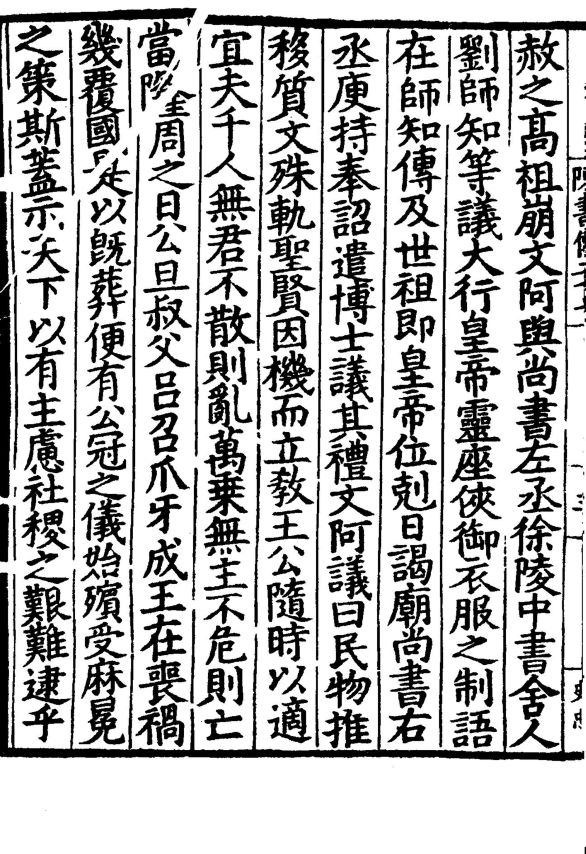 赦之高祖崩文阿與尚書左丞徐陵中書舍人
劉師知等議大行皇帝靈座俠御衣服之制語
在師知傳及世祖即皇帝位剋日謁廟尚書右
丞庾持奉詔遣博士議其禮文阿議曰民物推
移質文殊軌聖賢因機而立教王公隨時以適
宜夫千人無君不散則亂萬乗無主不危則亡
當隆周之日公旦叔父吕召爪牙成王在喪禍
幾覆國是以旣葬便有公冠之儀始殯受麻冕
之策斯蓋示天下以有主慮社稷之艱難逮乎